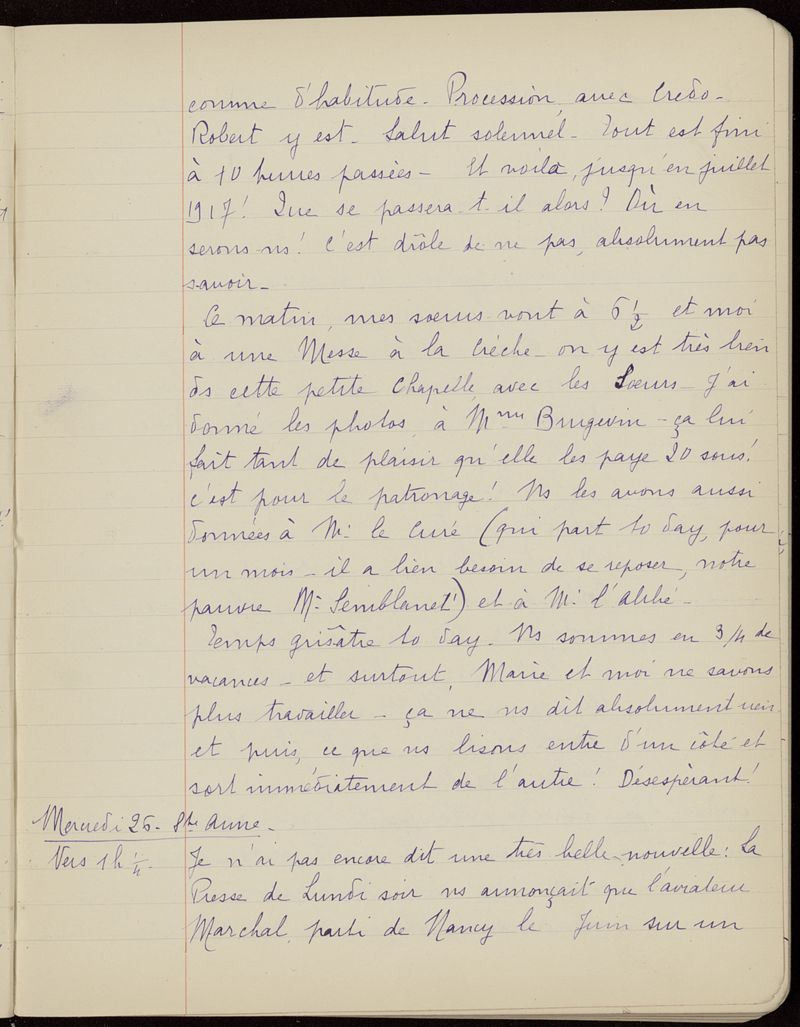 comme d'habitude - Procession, avec Credo -
Robert y est - Salut solennel - Tout est fini
à 10 heures passées - Et voilà, jusqu'en juillet
1917! Que se passera-t-il alors? Où en
serons-ns! C'est drôle de ne pas, absolument pas
savoir -
Ce matin, mes sœurs vont à 6 ½ et moi
à une Messe à la Crèche - on y est très bien
ds cette petite Chapelle avec les Sœurs - J'ai
donné les photos à Mme Brugevin - ça lui
fait tant de plaisir qu'elle les paye 20 sous!
c'est pour le patronage! Ns les avons aussi
données à Mr le Curé (qui part to day, pour
un mois - il a bien besoin de se reposer, notre
pauvre Mr Semblanet!) et à Mr l'Abbé -
Temps grisâtre to day - Ns sommes en 3/4 de
vacances - et surtout, Marie et moi ne savons
plus travailler - ça ne ns dit absolument rien
et puis, ce que ns lisons entre d'un côté et
sort immédiatement de l'autre! Désespérant!
Mercredi 26 - Ste Anne -
Vers 1h ¼ - Je n'ai pas encore dit une très belle nouvelle: La
Presse de Lundi soir ns annonçait que l'aviateur
Marchal, parti de Nancy le Juin sur un